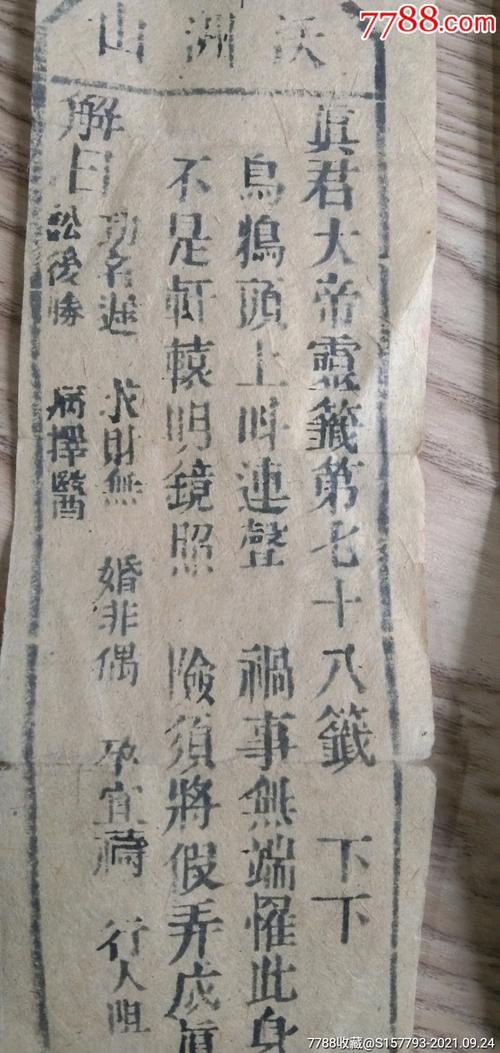 7788.com
沃洲山
真君大帝靈籤第七十八籤 下下
烏鴉頭上呌連聲 禍事無端懼此身
不是軒轅明鏡照 險須將假弄成眞
解曰
功名遲 求財無 婚非偶 孕宜禱 行人阻
訟後勝 病擇醫
7788收藏@S157793-2021.09.24